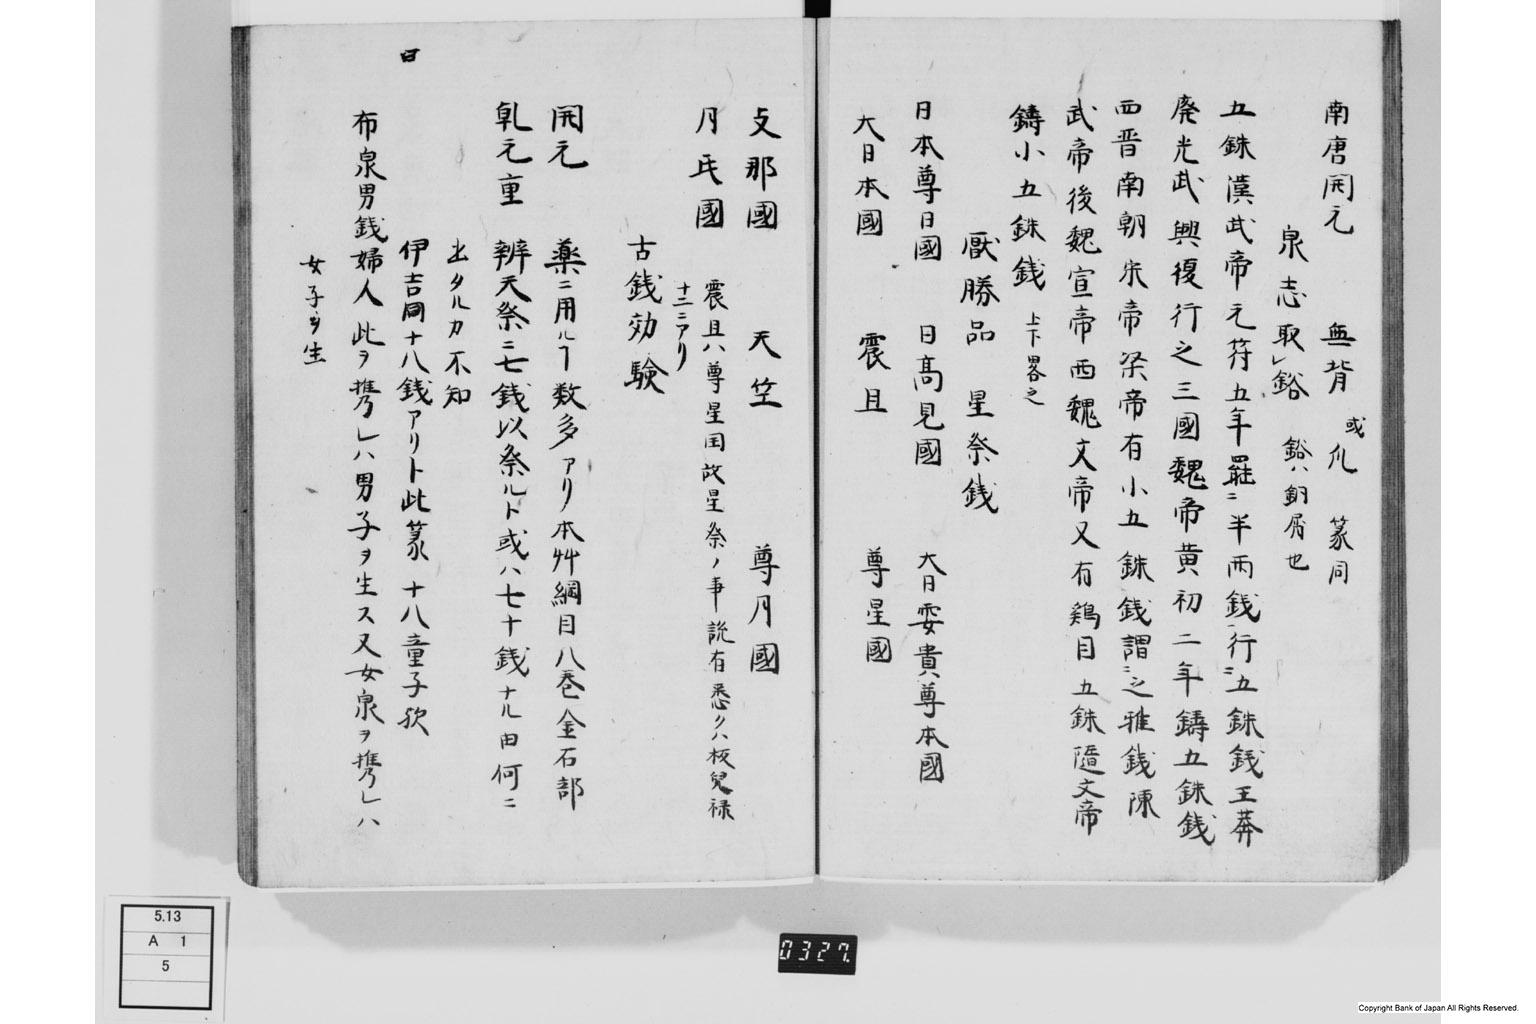 南唐開元 無背 或爪 篆同
泉志取鋊 鋊ハ銅屑也
五銖漢武帝元符五年罷ニ半両銭行ニ五銖銭王莽
廃光武興復行之三國魏帝黄初二年鑄五銖銭
西晋南朝宋帝梁帝有小五銖銭謂ニ之雅銭陳
武帝後魏宣帝西魏文帝又有鶏目五銖隨文帝
鑄小五銖銭 上下畧之
厭勝品 星祭銭
日本尊日國 日高見國 大日孁貴尊本國
大日本國 震旦 尊星國
支那國 天竺 尊月國
月氏國 震旦ハ尊星国故星祭ノ事説有悉クハ板兒禄
十二ニアリ
古銭効験
開元 薬ニ用ルヿ数多アリ本艸綱目八巻金石部
乹元重 辨天祭ニ七銭以祭ルト或ハ七十銭ナル由何ニ
出タルカ不知
伊吉同十八銭アリト此篆十八童子欤
布泉男銭婦人此ヲ携レハ男子ヲ生ス又女泉ヲ携レハ
女子ヲ生
曰
5.13
A 1
5
0327.
Copyright Bank of Japan All Rights Reserved.